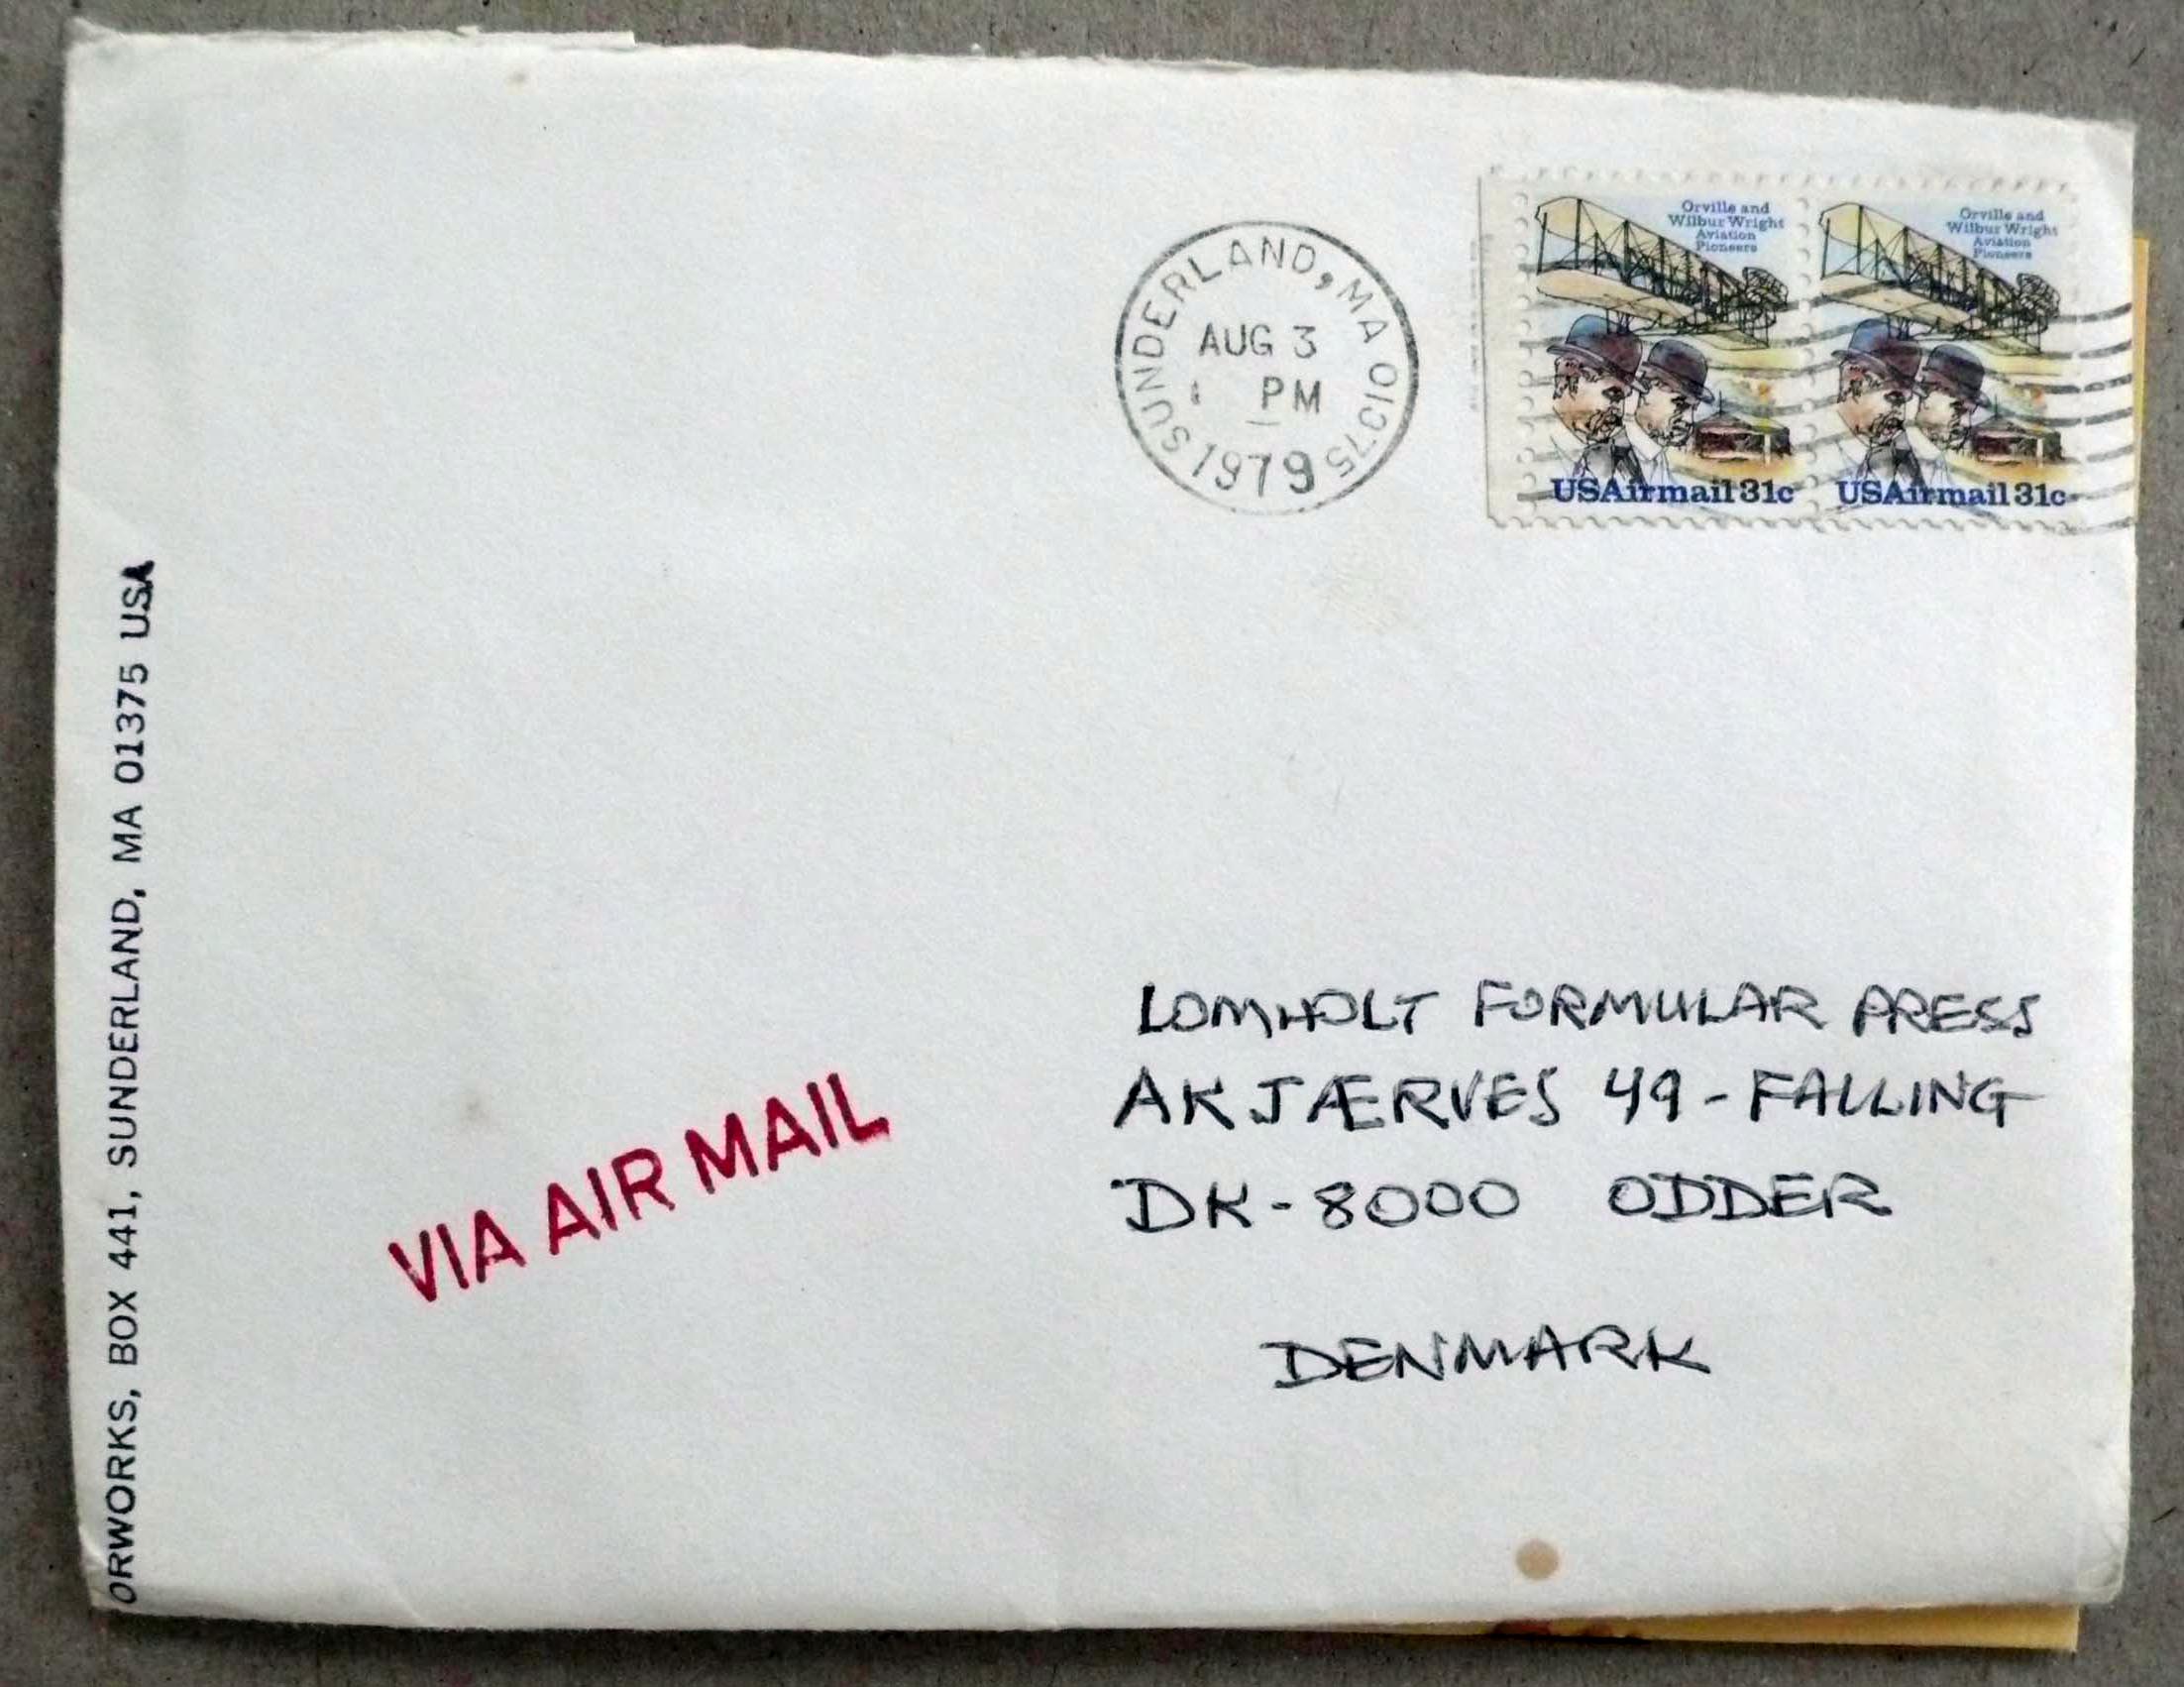 SUNDERLAND, MA 01375
AUG 3
PM
1979
Orville and
Wilbur Wright
Aviation
Pioneers
USAirmail 31c
Orville and
Wilbur Wright
Aviation
Pioneers
USAirmail 31c
ORWORKS, BOX 441, SUNDERLAND, MA 01375 USA
VIA AIR MAIL
LOMHOLT FORMULAR PRESS
AKJÆRVES 49 - FALLING
DK-8000 ODDER
DENMARK